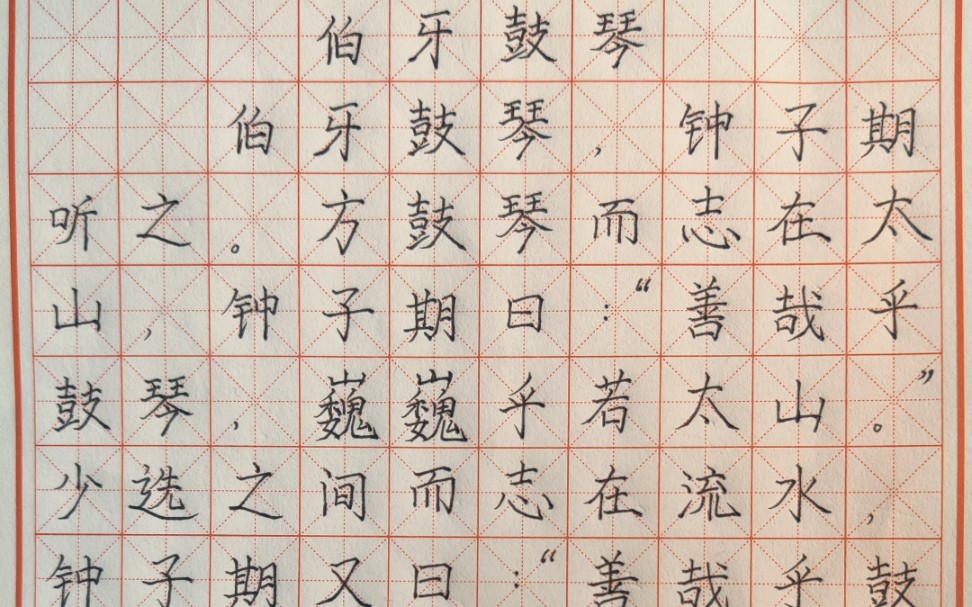 伯牙鼓琴
伯牙鼓琴，钟子期
听之。方鼓琴而志在太
山，钟子期曰：“善哉乎
鼓琴，巍巍乎若太山。”
少选之间而志在流水，
钟子期又曰：“善哉乎鼓